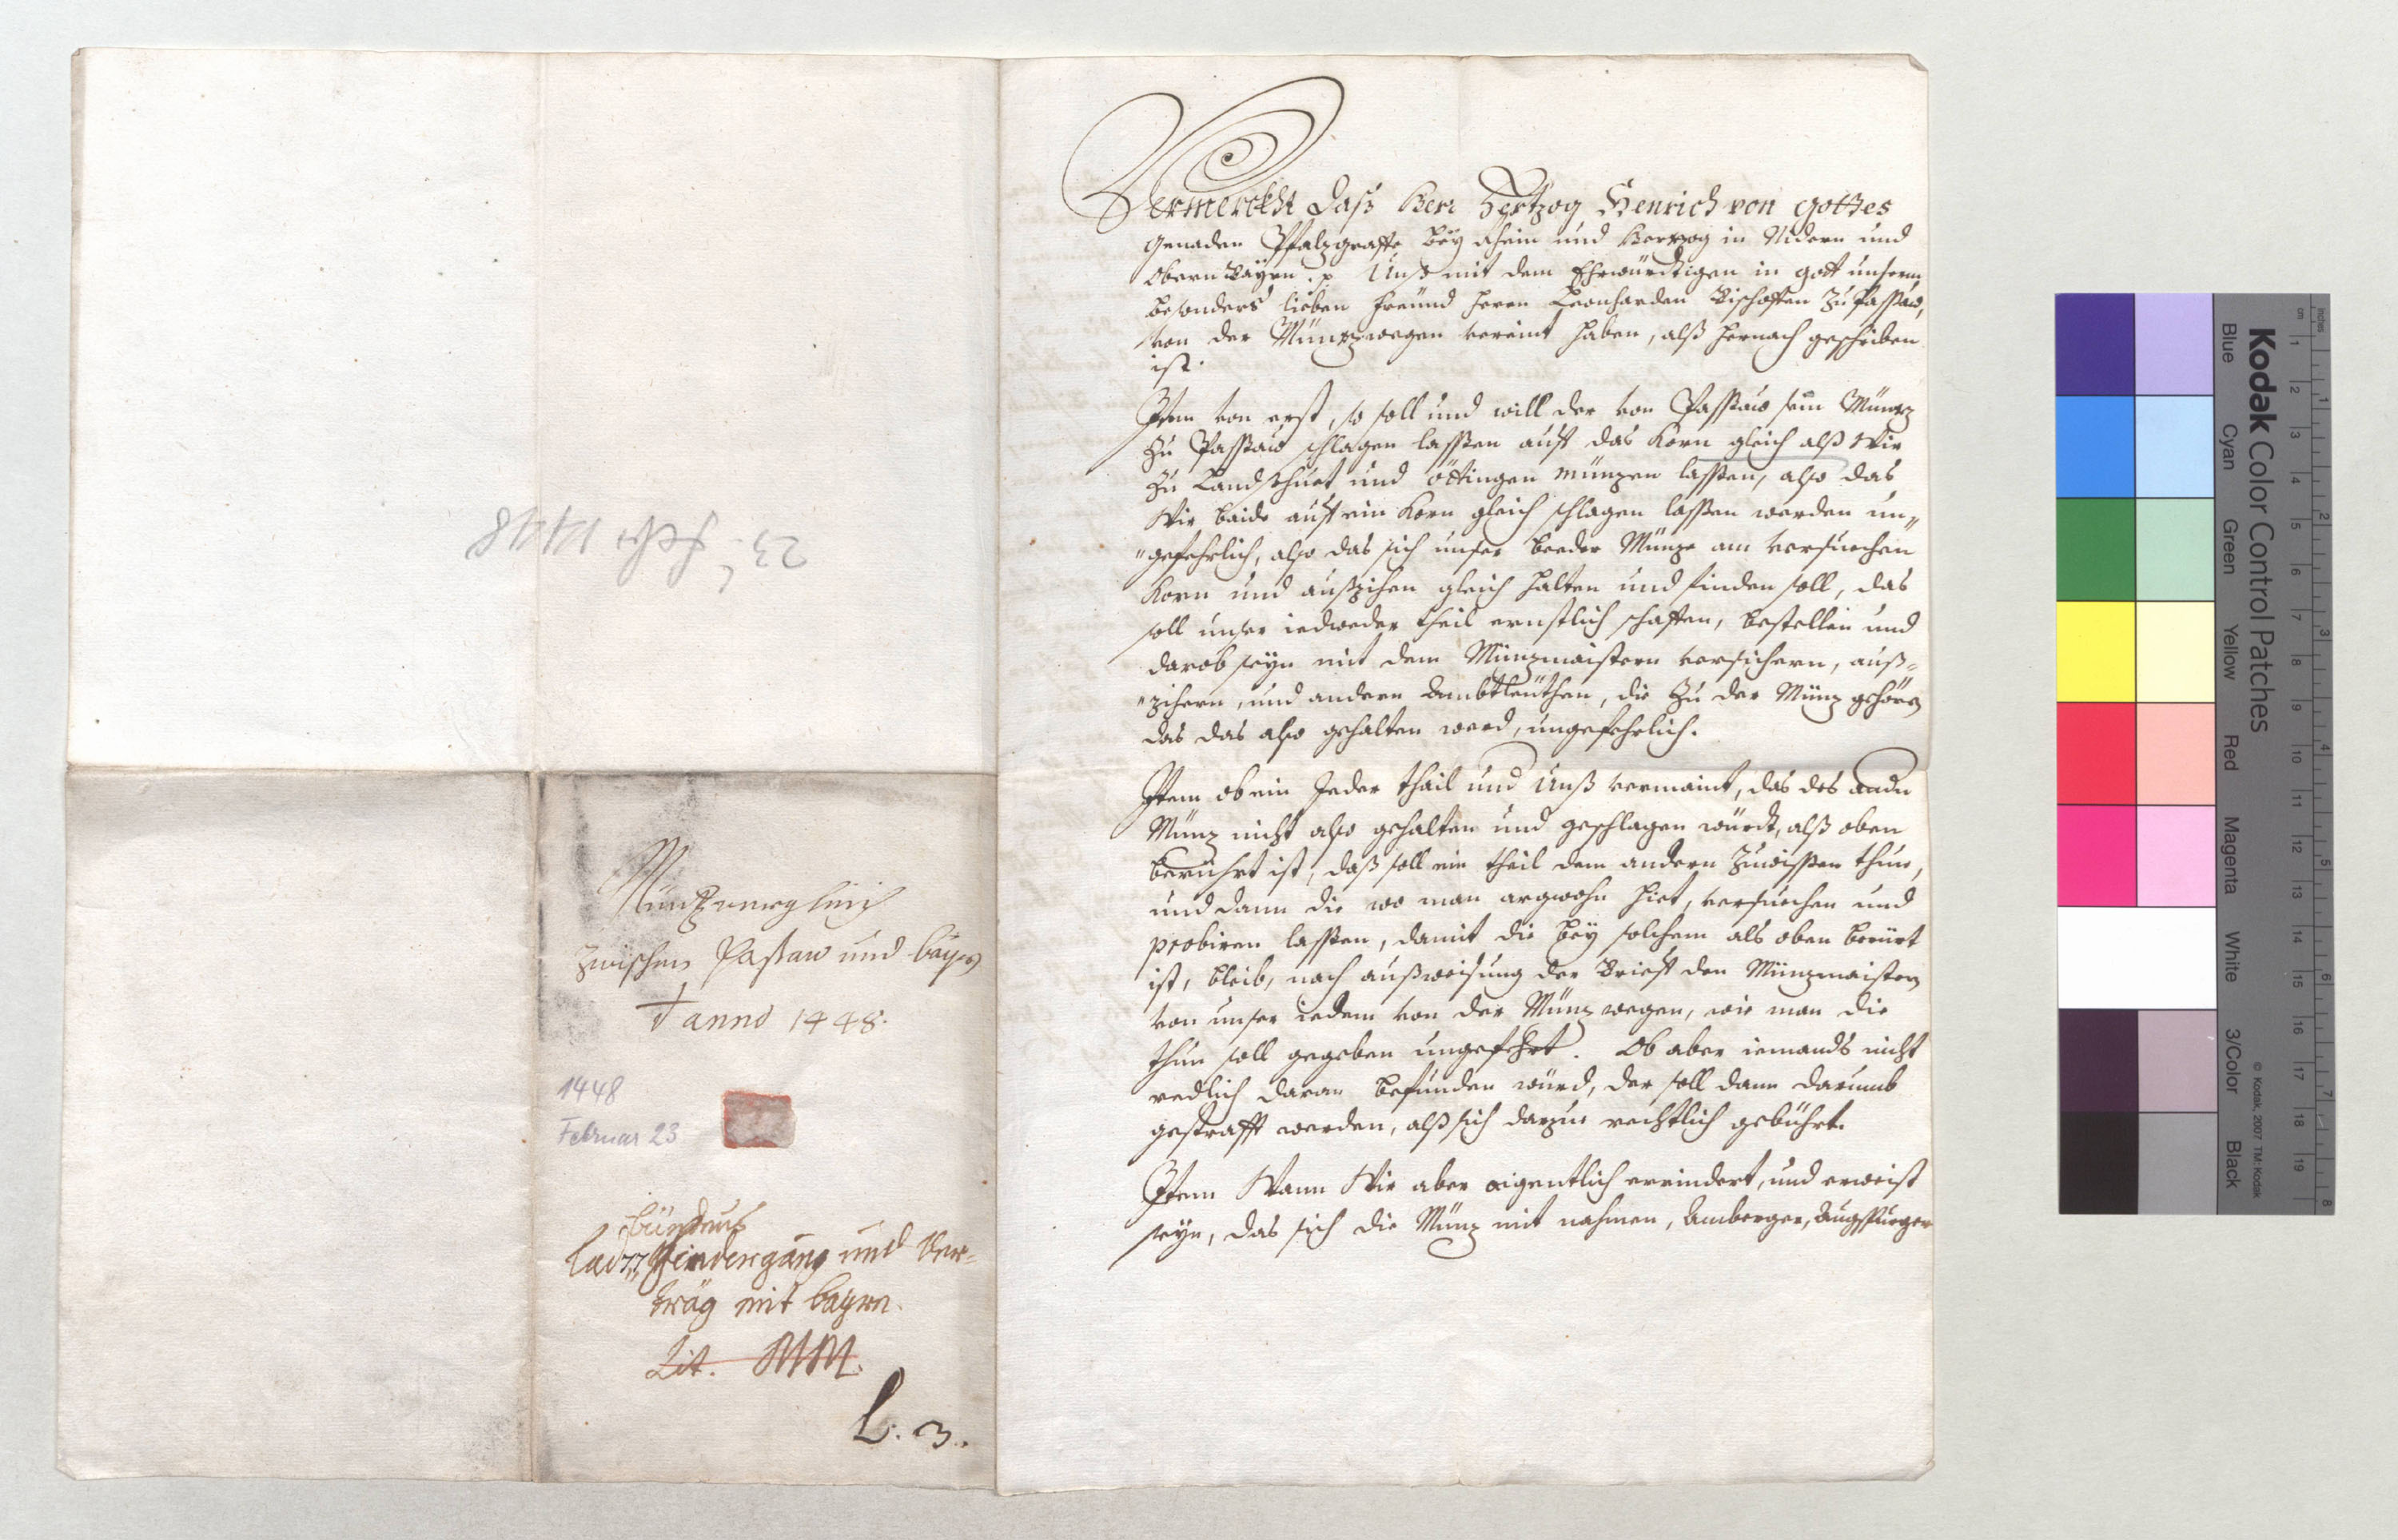 23. Febr 1448
Müntzverglich
zwischen Passaw und bayrn
anno 1448.
1448
Februar 23
und Ver-
träg mit bayrn.
Lit. MM.
L. 3.
Vermerckht daß Herr Hertzog Henrich von gottes
genaden Pfalzgraffe bey Rhein und Herzog in Nidern und
Obern Bayrn. p. Unß mit dem Ehrwürdtigen in gott unserm
besonders lieben freund herrn Leonharden Bischoffen zu Passaw,
von der Münzwegen vereint haben, alß hernach geschriben
ist.
Item von erst, so soll und will der von Passaw sein Münz
zu Passaw schlagen lassen auff das Korn gleich alß Wir
zu Landshuet und öttingen münzen lassen, also das
Wir baide auff ein Korn gleich schlagen lassen werden un„
„gefehrlich, also das sich unser beeder Münze am versuechen
Korn und außzihen gleich halten und finden soll, das
soll unser iedweder theil ernstlich schaffen, bestellen und
darob seyn mit dem Münzmaistern versuchern, auß-
„zihern, und andern Ambtleüthen, die zu der Münz gehörn
das das also gehalten werd, ungefehrlich.
Item ob ein Jeder theil und Unß vermaint, das des andn
Münz nicht also gehalten und geschlagen würdt, alß oben
berührt ist, daß soll ein theil dem andern zuwissen thun,
und dann die wo man argwohn hiet, versuechen und
probiren lassen, damit die bey solchem als oben berürt
ist, bleib, nach außweisung der Brieff den Münzmaistern
von unser iedem von der Münz wegen, wie man die
thun soll gegeben ungefehrt. Ob aber iemands nicht
redlich daran befunden würd, der soll dann darumb
gestrafft werden, alß sich darzue rechtlich gebührt.
Item Wann Wir aber aigentlich errindert, und erweist
seyn, das sich die Münz mit nahmen, Amberger, Augspurger